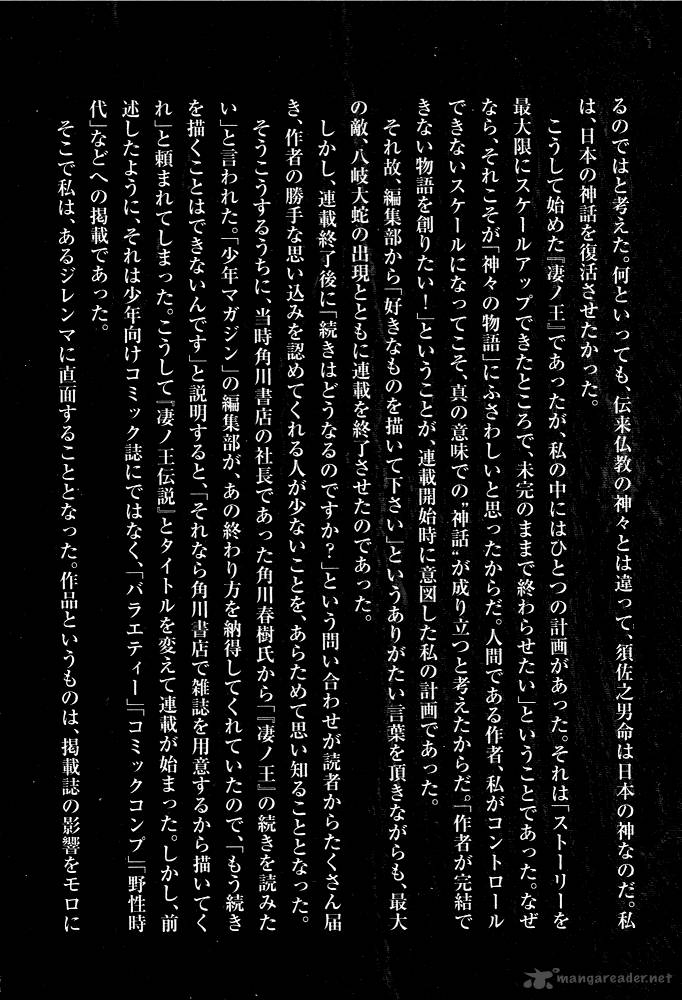 るのではと考えた。何といっても、伝来仏教の神々とは違って、須佐之男命は日本の神なのだ。私
は、日本の神話を復活させたかった。
こうして始めた『凄ノ王』であったが、私の中にはひとつの計画があった。それは「ストーリーを
最大限にスケールアップできたところで、未完のままで終わらせたい」ということであった。なぜ
なら、それこそが「神々の物語」にふさわしいと思ったからだ。人間である作者、私がコントロール
できないスケールになってこそ、真の意味での〝神話〟が成り立つと考えたからだ。「作者が完結で
きない物語を創りたい！」ということが、連載開始時に意図した私の計画であった。
それ故、編集部から「好きなものを描いて下さい」というありがたい言葉を頂きながらも、最大
の敵、八岐大蛇の出現とともに連載を終了させたのであった。
しかし、連載終了後に「続きはどうなるのですか？」という問い合わせが読者からたくさん届
き、作者の勝手な思い込みを認めてくれる人が少ないことを、あらためて思い知ることとなった。
そうこうするうちに、当時角川書店の社長であった角川春樹氏から「『凄ノ王』の続きを読みた
い」と言われた。「少年マガジン」の編集部が、あの終わり方を納得してくれていたので、「もう続き
を描くことはできないんです」と説明すると、「それなら角川書店で雑誌を用意するから描いてく
れ」と頼まれてしまった。こうして『凄ノ王伝説』とタイトルを変えて連載が始まった。しかし、前
述したように、それは少年向けコミック誌にではなく、「バラエティー」「コミックコンプ」「野性時
代」などへの掲載であった。
そこで私は、あるジレンマに直面することとなった。作品というものは、掲載誌の影響をモロに
mangareader.net